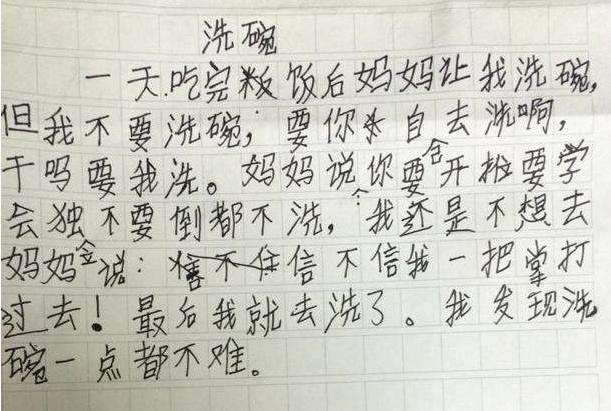 洗碗
一天吃完粄饭后妈妈让我洗碗,
但我不要洗碗，要你自去洗啊，
干吗要我洗。妈妈说你要会开始要学
会独不要倒都不洗，我还是不想去
妈妈会说：信不信我一把掌打
过去！最后我就去洗了。我发现洗
碗一点都不难。